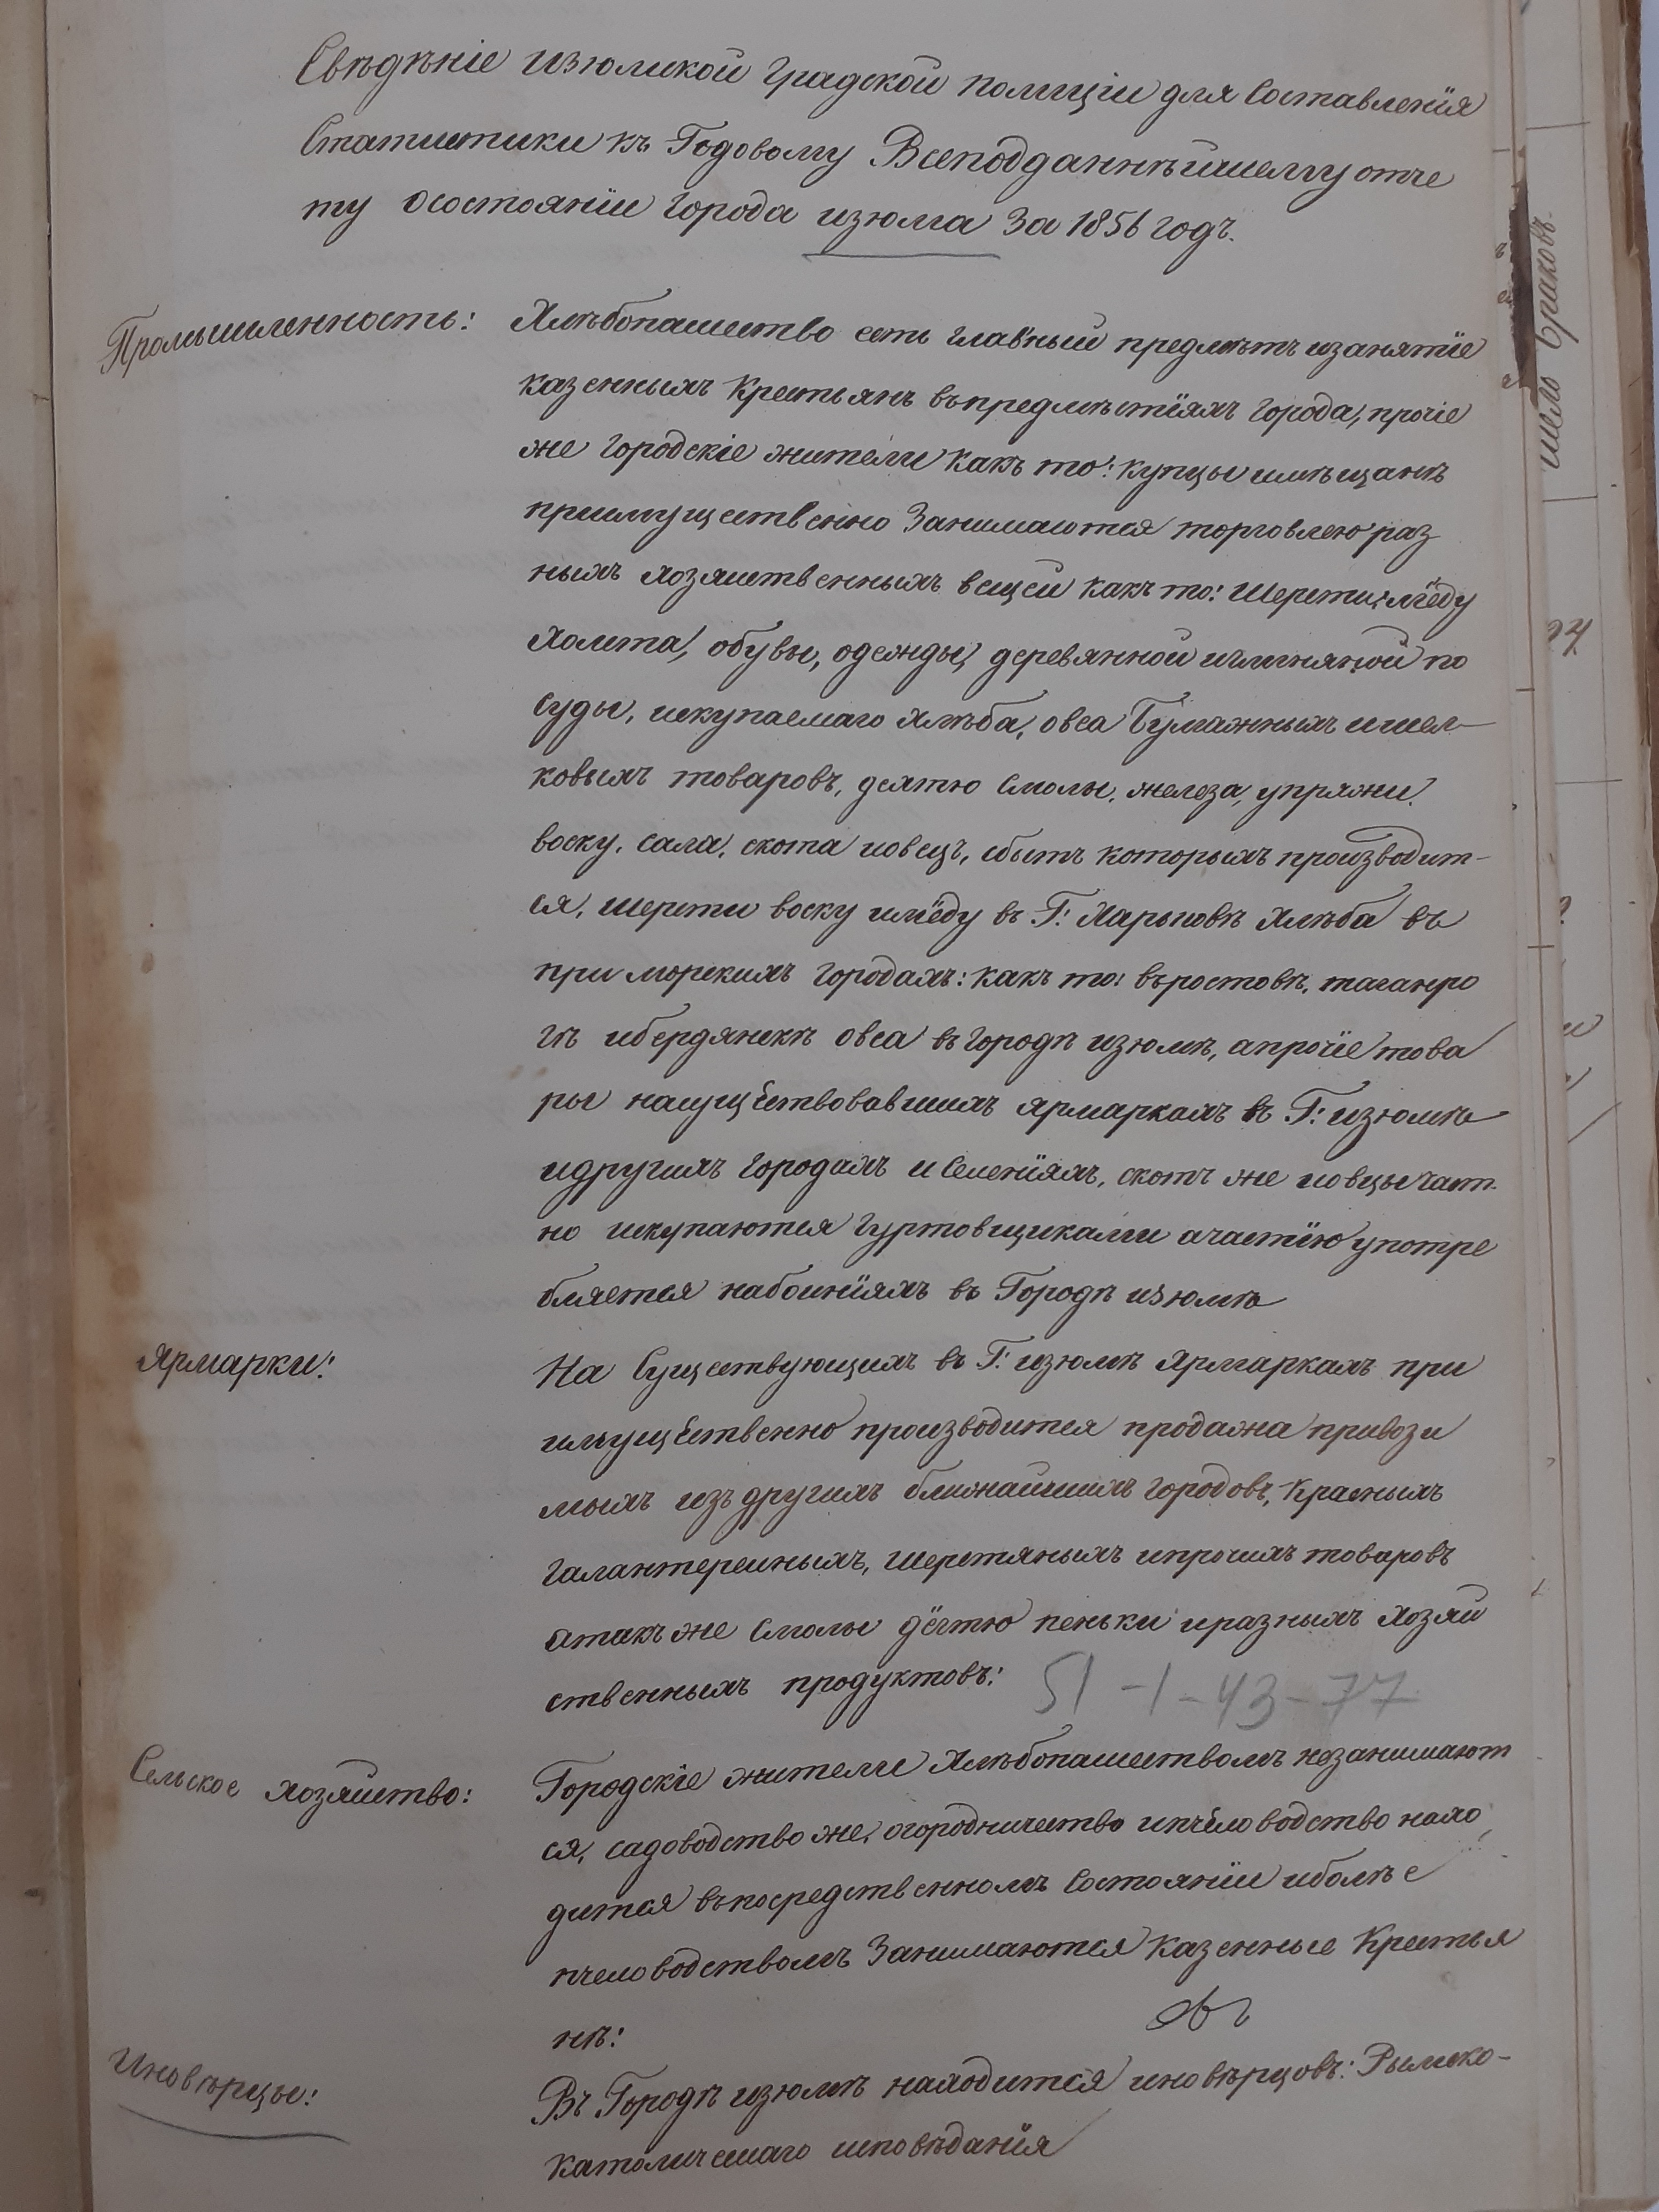 Свѣдѣніе изюмской градской полиціи для Составленія
Статистики къ Годовому Всеподданнѣйшему отче
ту осостояніи Города изюма За 1856 годъ.
Промышленность:
Хлѣбопашество есть главный предмѣтъ изанятіе
казенныхъ Крестьянъ въпредмѣстіяхъ Города, прочіе
же Городскіе жители Какъ то: купцы имѣщанѣ
приимущественно Занимаются торговлею раз
ныхъ хозяиственныхъ вещей Какъ то: Шерсти, мёду
Холста, обувы, одежды, деревянной иглиняной по
суды, искупаемаго хлѣба, овса Бумажныхъ ишел-
ковыхъ товаровъ, дехтю Смолы, железа, упряжи,
воску, сала, скота иовецъ, сбытъ которыхъ производит-
ся, шерсти воску имёду въ Г: Харьковѣ Хлѣба въ
при морскихъ Городахъ: Какъ то: въростовѣ, таганро
гѣ ибердянскѣ овса въ городѣ изюмѣ, апрочіе това
ры насуществовавшихъ ярмаркахъ въ Г: изюмѣ
идругихъ Городахъ и Селеніяхъ, скотъ же иовцы част-
но искупаются Гуртовщиками ачастію употре
бляется набоиніяхъ въ Городѣ изюмѣ
Ярмарки:
На Существующихъ въ Г: изюмѣ Ярмаркахъ при
имущественно производится продажа привози
мыхъ изъ другихъ ближайшихъ городовъ, Красныхъ
Галантереиныхъ, шерстяныхъ ипрочихъ товаровъ
атакъ же Смолы дёхтю пеньки иразныхъ хозяй
ственныхъ продуктовъ:
51-1-43-77
Сельское хозяйство:
Городскіе жители Хлѣбопашествомъ незанимают
ся, садоводство же, огородничество ипчёловодство нахо
дится въпосредственномъ Состояніи иболѣе
пчеловодствомъ Занимаются Казенные Крестья
нѣ:
Иновѣрцы:
Въ Городѣ изюмѣ находится иновѣрцовъ: Рымско-
Католическаго исповѣданія
шело браковъ.